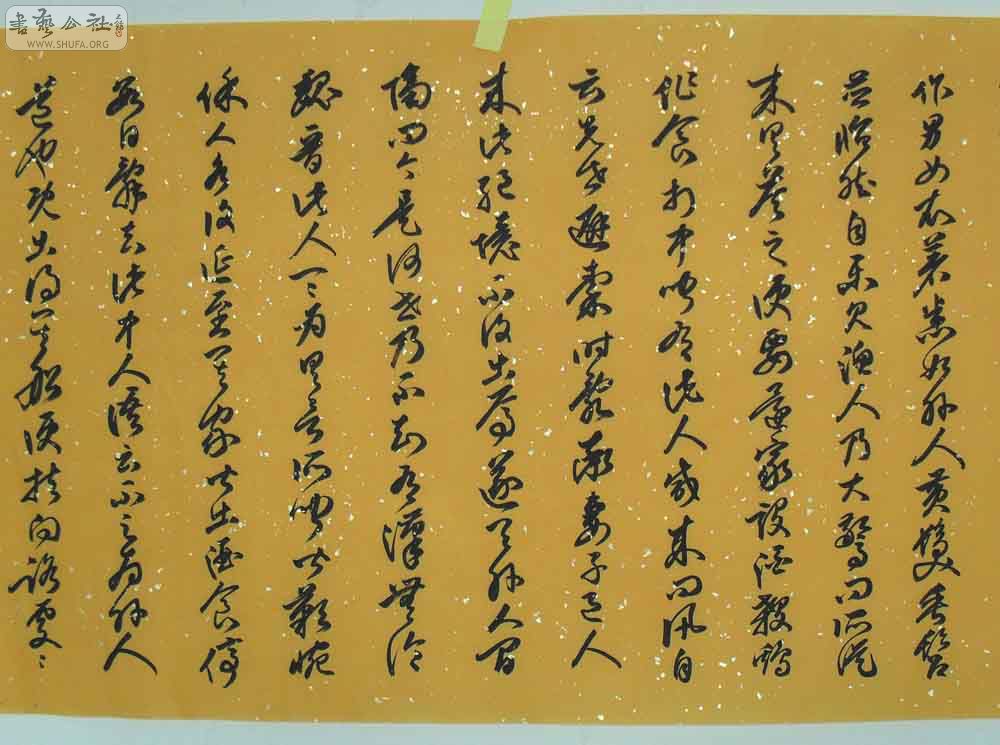 書藝公社
WWW.SHUFA.ORG
作男女衣著悉如外人黃髮垂髫
並怡然自樂見漁人乃大驚問所從
來具答之便要還家設酒殺鷄
作食村中聞有此人咸來問訊自
云先世避秦時亂率妻子邑人
來此絕境不復出焉遂與外人間
隔問今是何世乃不知有漢無論
魏晉此人一一為具言所聞皆歎惋
餘人各復延至其家皆出酒食停
數日辭去此中人語云不足為外人
道也既出得其船便扶向路處處